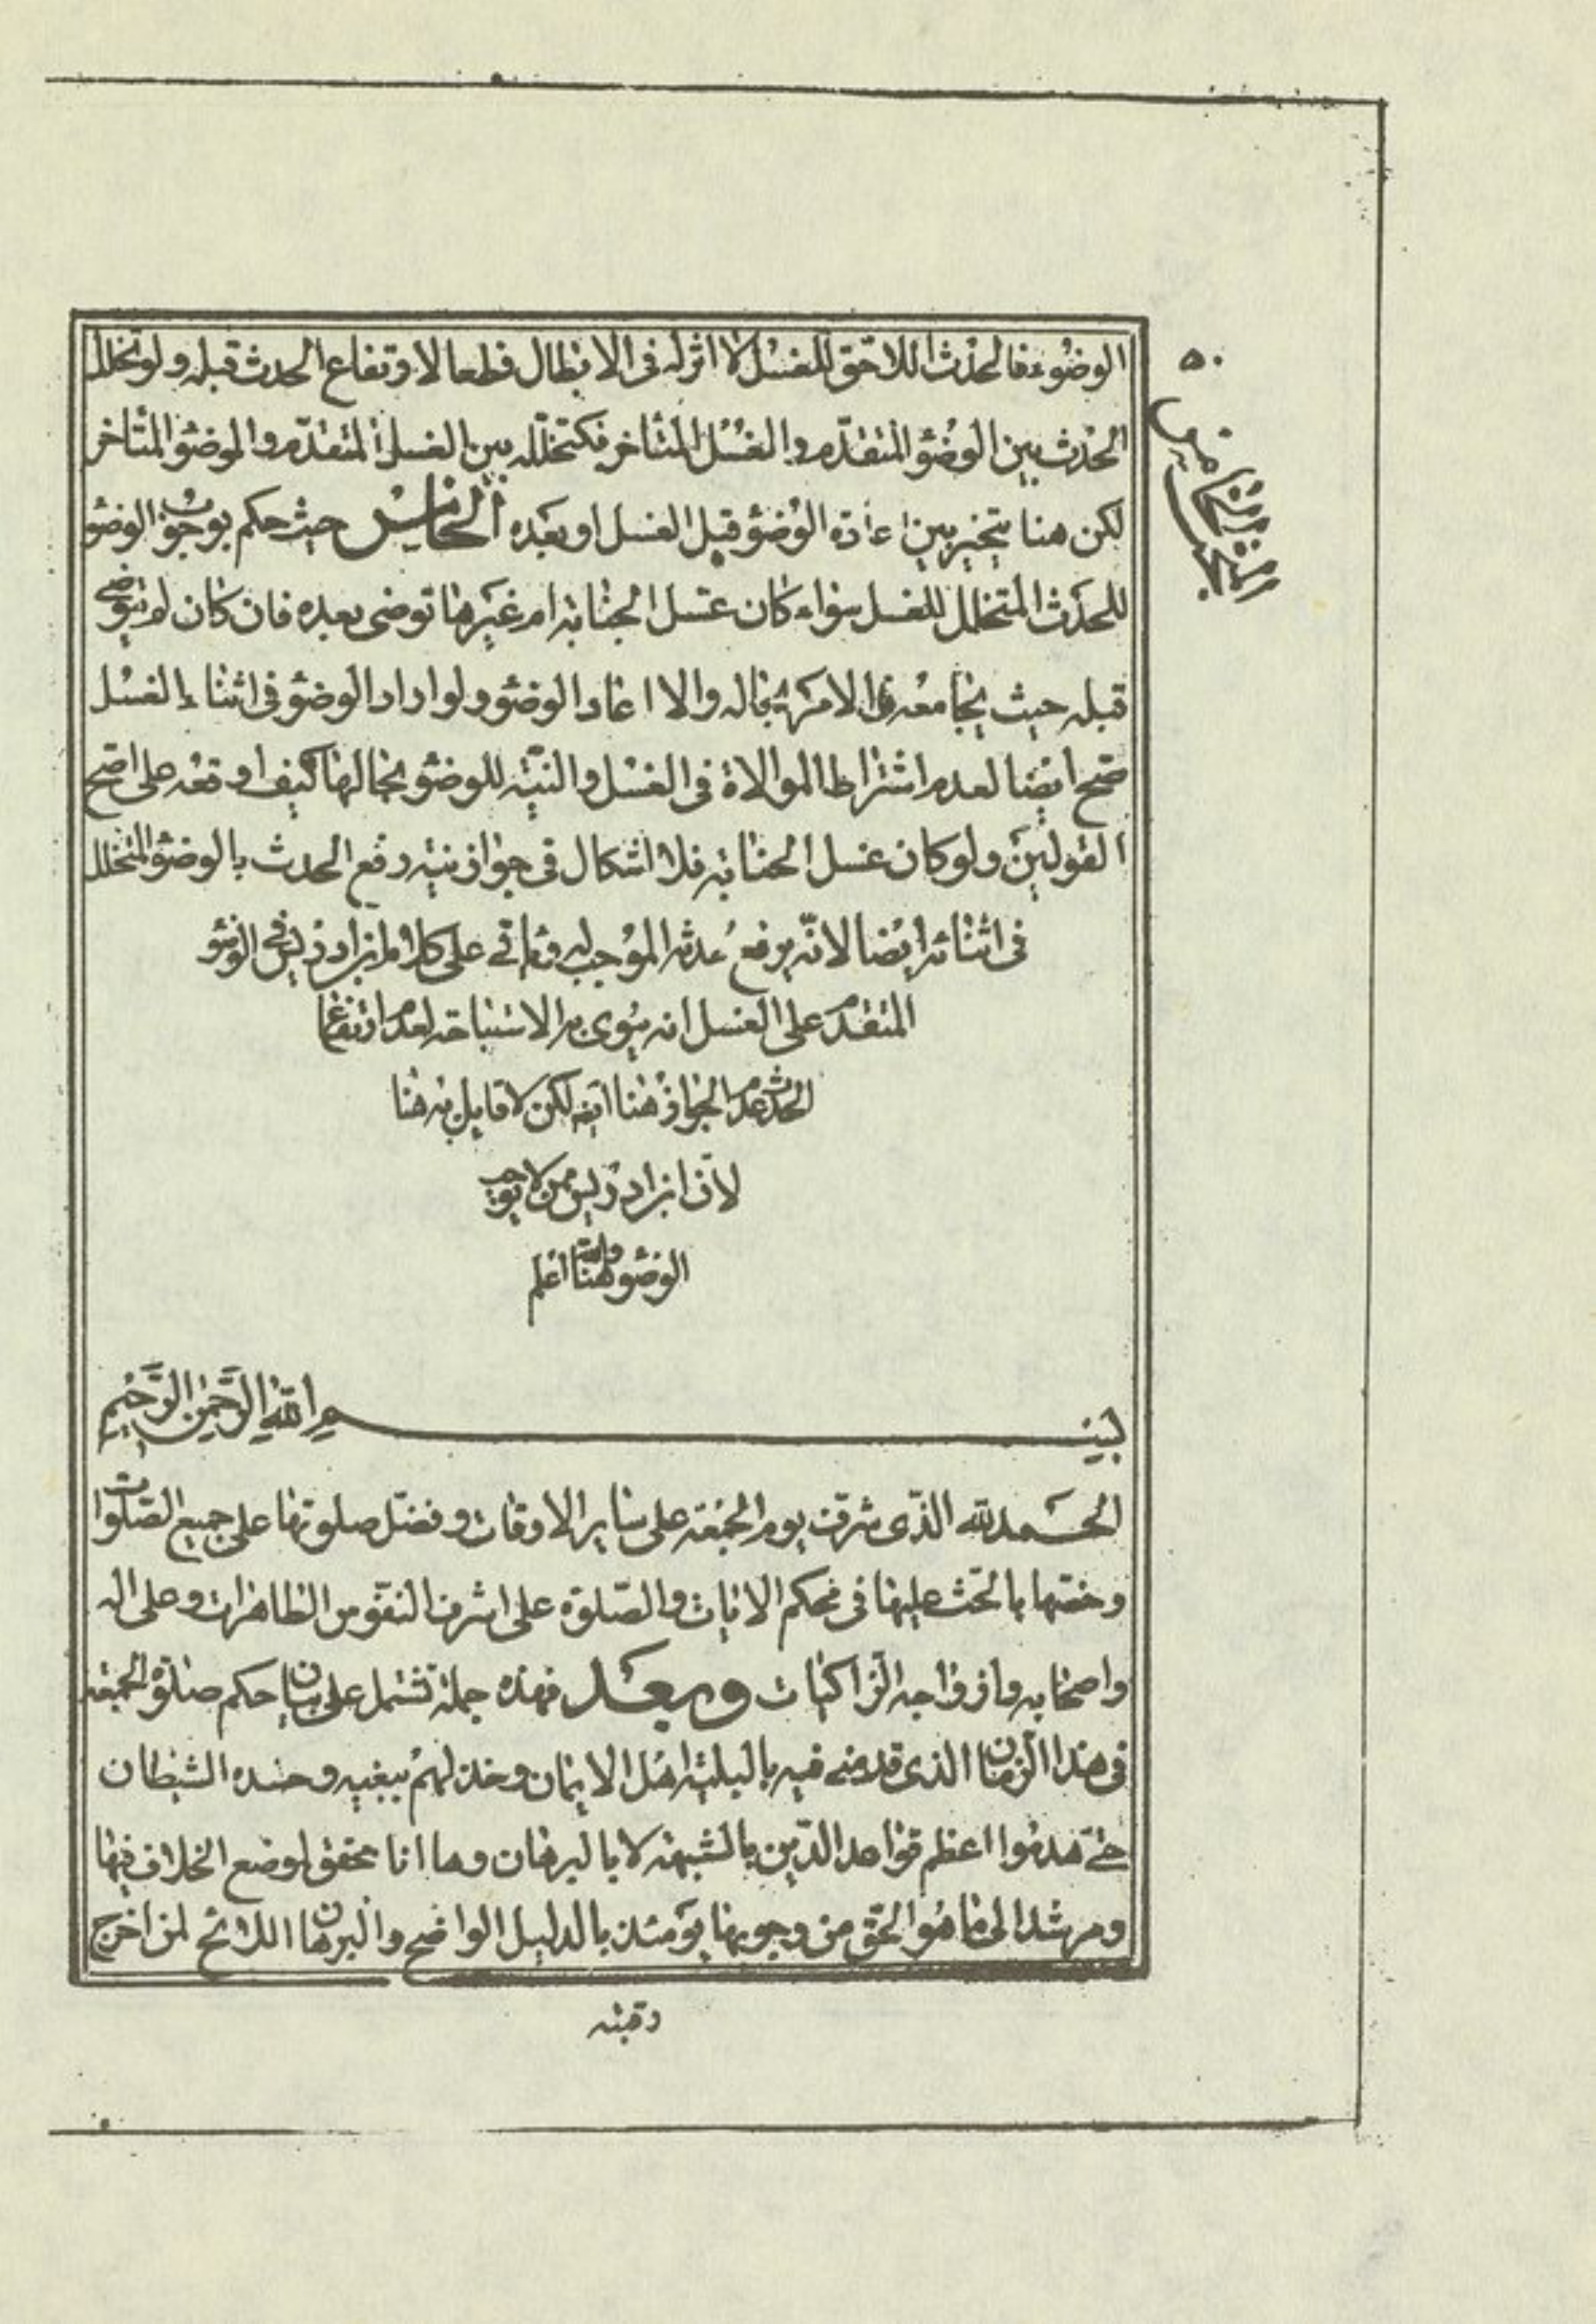 ٥٠
الوضوء فالحدث اللاحق للغسل لا اثر له فى الابطال قطعا لارتفاع الحدث قبله ولو تخلل
الحدث بين الوضوٴ المتقدّم والغسل المتاخر فكتخلّله بين الغسل المتقدّم والوضوٴ المتاخر
لكن هنا يتخير بين اعادة الوضوٴ قبل الغسل او بعده الخامس حيث حكم بوجوب الوضوٴ
للحدث المتخلل للغسل سواء كان غسل الجنابة ام غيرها توضى بعده فان كان لم يتوضى
قبله حيث يجامعه فالامر بحاله والا اعاد الوضوٴ ولو اراد الوضوٴ فى اثناء الغسل
صح ايضا لعدم اشتراط الموالاة فى الغسل والنيّة للوضوٴ بحالها كيف اوقعه على اصح
القولين ولو كان غسل الجنابة فلا اشكال فى جواز نية رفع الحدث بالوضوٴ المتخلل
فى اثنائه ايضا لانّه يرفع حدثه الموجب له وياتى على كلام ابن ادريس فى الوضوٴ
المتقدم على الغسل انه ينوى به الاستباحة لعدم ارتفاع
الحدث عدم الجواز هنا ايضه لكن لا قايل به هنا
لان ابن ادريس ممن لا يوجب
الوضوٴ هنا والله اعلم
بسم الله الرّحمن الرّحيم
الحمد لله الذى شرّف يوم الجمعة على ساير الاوقات وفضّل صلوتها على جميع الصّلوات
وخصّها بالحّث عليها فى محكم الايات والصّلوة على اشرف النفوس الطاهرات وعلى اله
واصحابه وازواجه الزاكيات وبعد فهذه جملة تشتمل على بيان حكم صلوة الجمعة
فى هذا الزمان الذى قد منى فيه بالبلية اهل الايمان وخذلهم ببغيه وحسده الشيطان
حتى هدموا اعظم قواعد الدّين بالشبهة لا بالبرهان وها انا محقق لوضع الخلاف فيها
ومرشد الى ما هو الحّق من وجوبها يومئذ بالدليل الواضح والبرهان اللائح لمن اخرج
رقبته